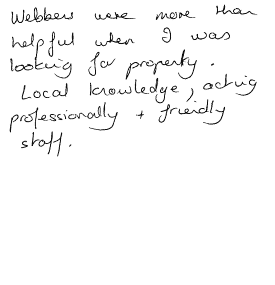 Webbers were more than
helpful when I was
looking for property.
Local knowledge, acting
professionally + friendly
staff.